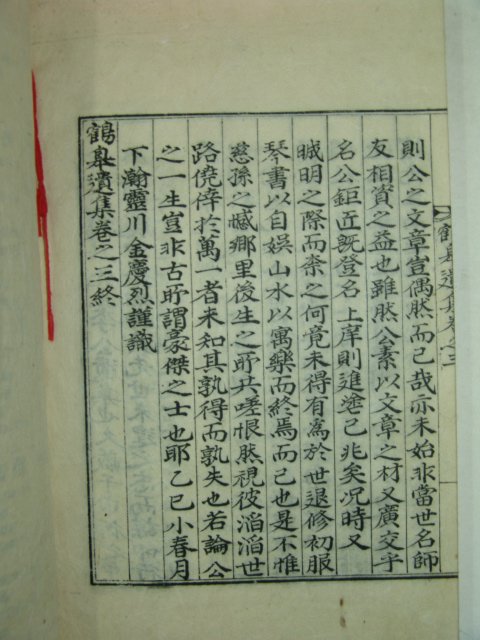 則公之文章豈偶然而已哉亦未始非當世名師
友相資之益也雖然公素以文章之材又廣交乎
名公鉅匠旣登名上庠則進塗已兆矣况時又
晠明之際而柰之何竟未得有爲於世退修初服
琴書以自娛山水以寓樂而終焉而已也是不惟
慈孫之憾鄕里後生之所共嗟恨然視彼滔滔世
路僥倖於萬一者未知其孰得而孰失也若論公
之一生豈非古所謂豪傑之士也耶乙巳小春月
下瀚靈川金慶烈謹識
鶴皐遺集卷之三終